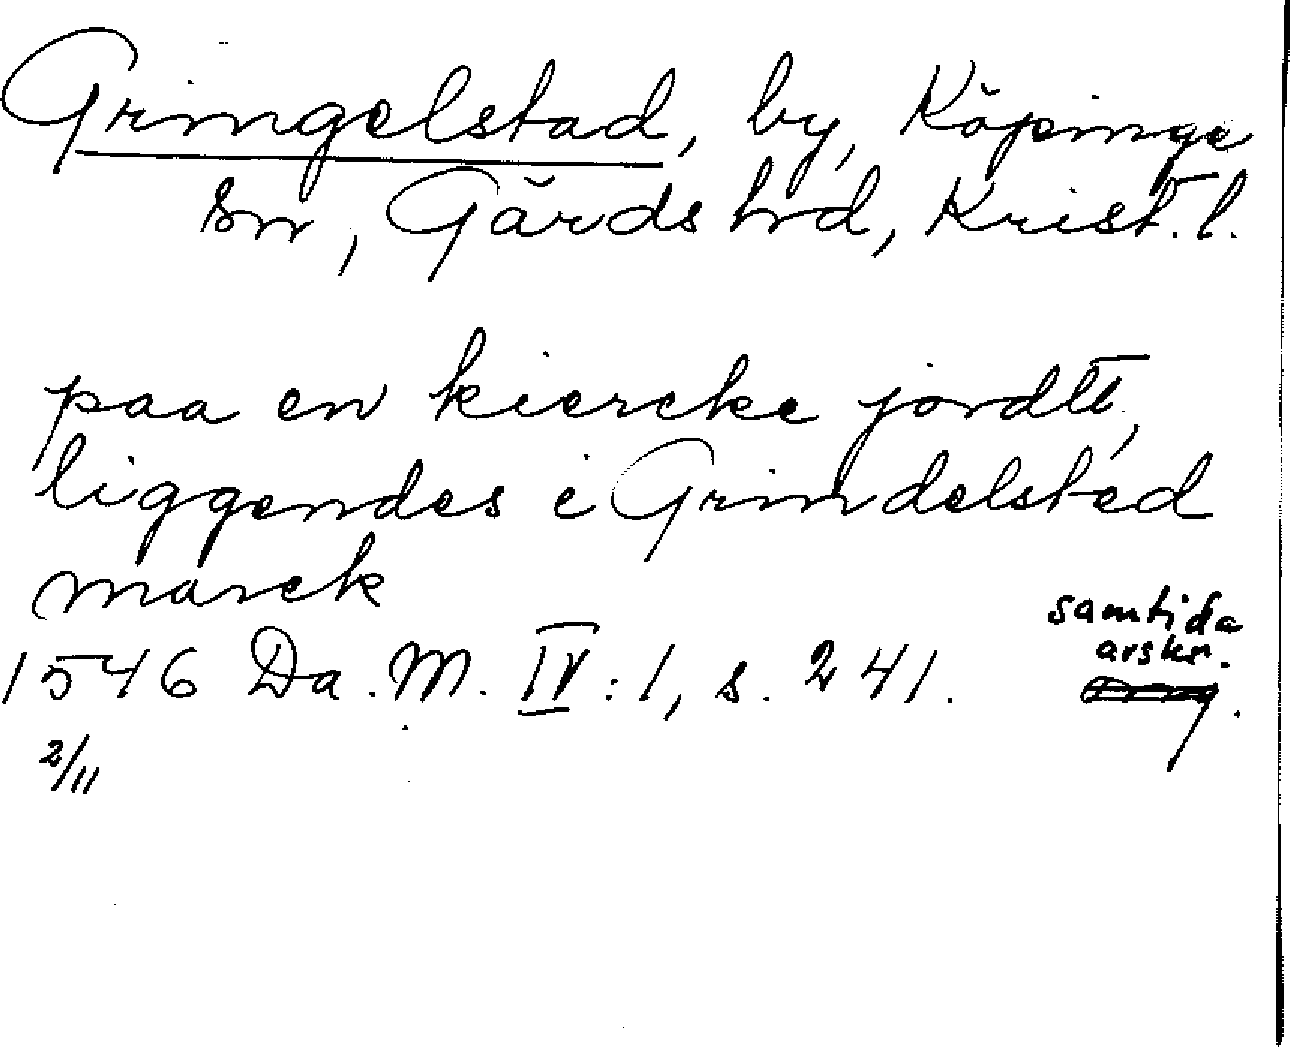 Gringelstad, by, Köpinge
sn, Gärds hrd, Krist. l.
paa en kiercke jordtt,
liggendes i Grindelsted
marck
samtida
avskr.
1546 Da. M. IV : 1, s. 241.
2/11